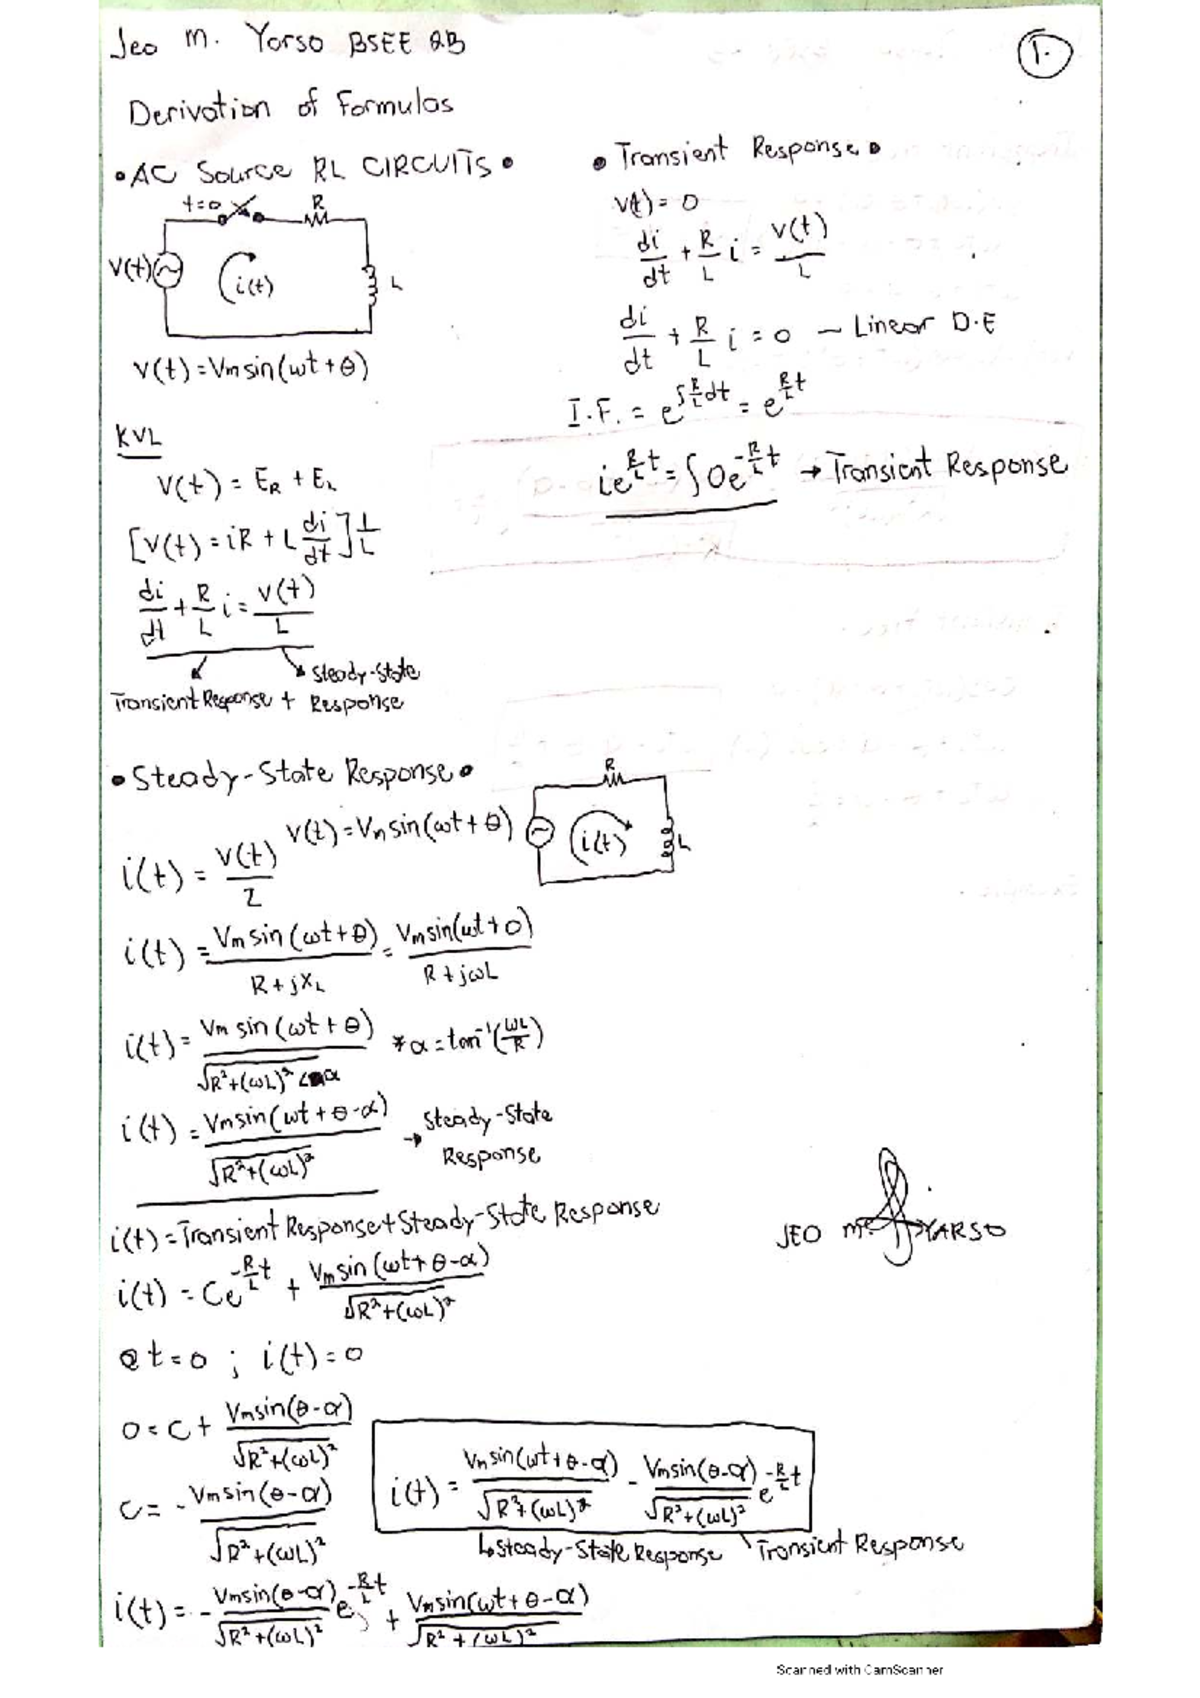 Jeo M. Yarso BSEE 2B
1.
Derivation of Formulas
• AC Source RL CIRCUITS •
t=0
R
V(t)
i(t)
L
V(t) = Vm sin(ωt + θ)
KVL
V(t) = E_R + E_L
[V(t) = iR + L di/dt] 1/L
di/dt + R/L i = V(t)/L
Transient Response + Steady-State Response
• Transient Response •
V(t) = 0
di/dt + R/L i = V(t)/L
di/dt + R/L i = 0 – Linear D.E
I.F. = e^(∫R/L dt) = e^(R/L t)
ie^(R/L t) = ∫0e^(-R/L t) → Transient Response
• Steady-State Response •
R
i(t)
L
i(t) = V(t)/Z V(t) = Vm sin(ωt + θ)
i(t) = Vm sin(ωt + θ)/(R + jX_L) = Vm sin(ωt + θ)/(R + jωL)
i(t) = Vm sin(ωt + θ)/(√R²+(ωL)² ∠α) * α = tan⁻¹(ωL/R)
i(t) = Vm sin(ωt + θ - α)/√R²+(ωL)² → Steady-State Response
i(t) = Transient Response + Steady-State Response
i(t) = Ce^(-R/L t) + Vm sin(ωt + θ - α)/√R²+(ωL)²
JEO M. YARSO
@ t = 0 ; i(t) = 0
0 = C + Vm sin(θ - α)/√R²+(ωL)²
C = - Vm sin(θ - α)/√R²+(ωL)²
i(t) = Vm sin(ωt + θ - α)/√R²+(ωL)² - Vm sin(θ - α)/√R²+(ωL)² e^(-R/L t)
↳ Steady-State Response Transient Response
i(t) = - Vm sin(θ - α)/√R²+(ωL)² e^(-R/L t) + Vm sin(ωt + θ - α)/√R²+(ωL)²
Scanned with CamScanner